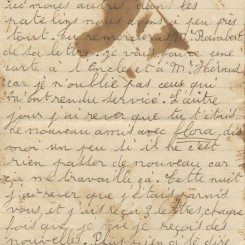 ici nous autres dans les
patelins nous avons à peu près
tout. tu remercieras Mr Rambert
de sa lettre. je vais écrire une
carte à l'Encle et à Mr Héraud
car je n'oublie pas ceux qui
m'ont rendu service. L'autre
jour j'ai rever que tu t'étais
de nouveau amis avec flora dis
moi un peu di il ne c'est
rien passer de nouveau car
ça me travaille ça. Cette nuit
j'ai rever que j'étais parmis
vous, et j'ai reçu 3 lettres, chaque
fois que je rêve je reçois des
nouvelles. Plus rien a te dire